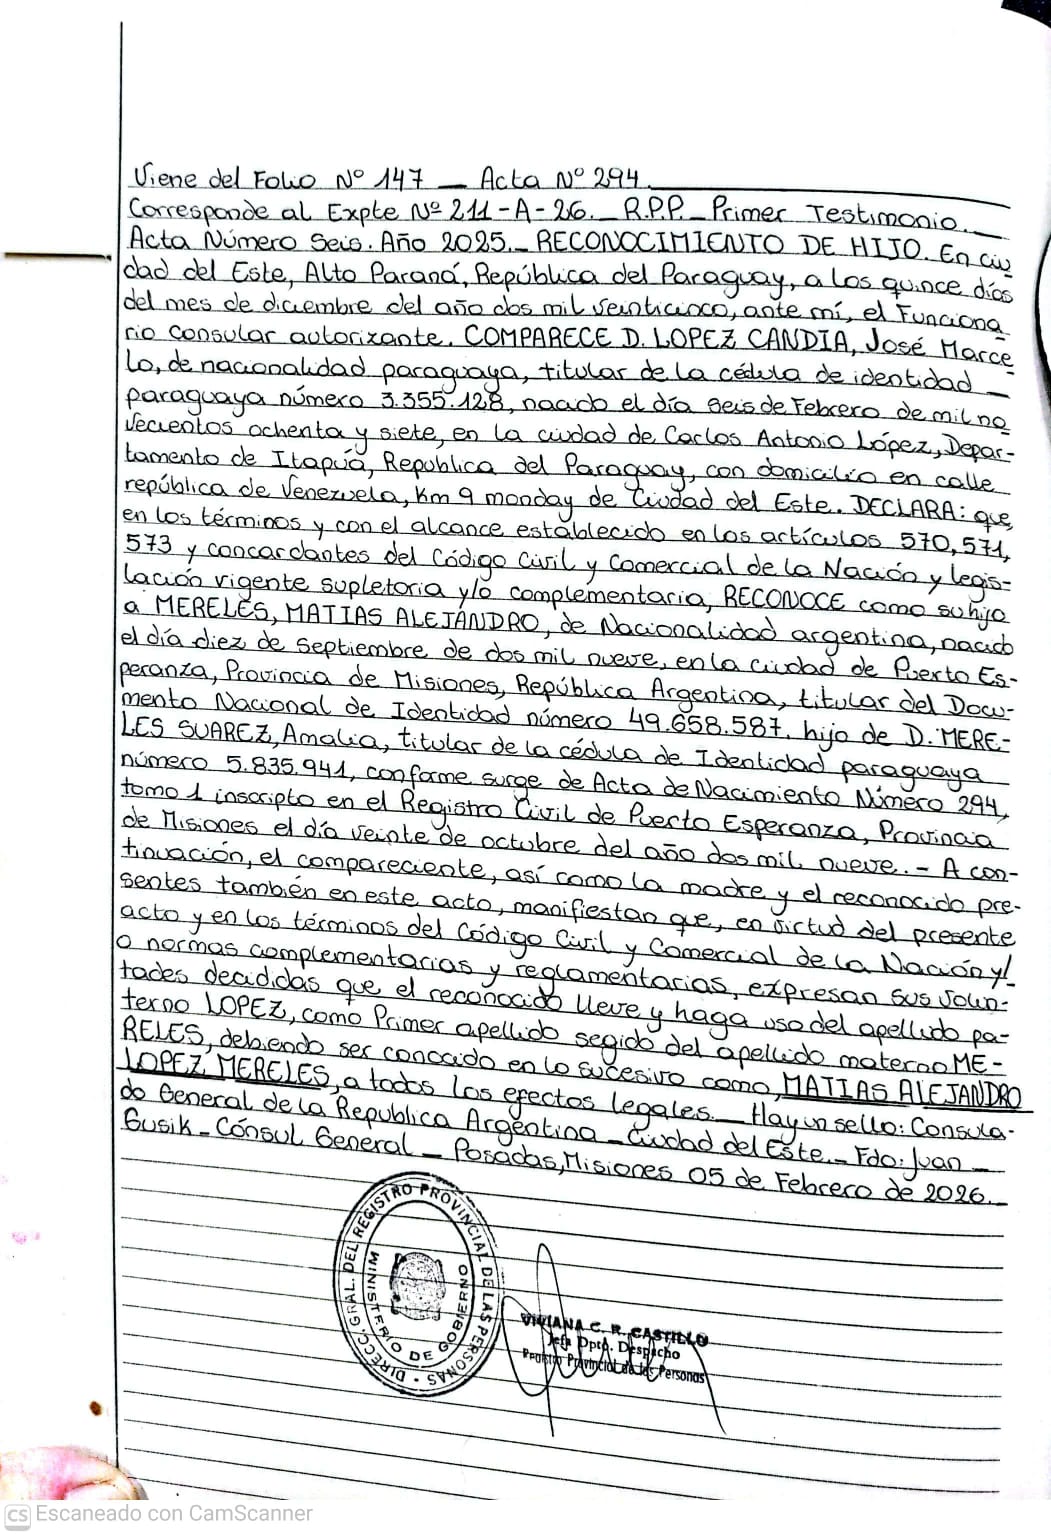 Viene del Folio Nº 147 _ Acta Nº 294.
Corresponde al Expte Nº 211-A-26._ R.P.P._ Primer Testimonio._
Acta Número Seis. Año 2025._ RECONOCIMIENTO DE HIJO. En ciu
dad del Este, Alto Paraná, República del Paraguay, a los quince días
del mes de diciembre del año dos mil veinticinco, ante mí, el Funciona
rio consular autorizante. COMPARECE D. LOPEZ CANDIA, José Marce
lo, de nacionalidad paraguaya, titular de la cédula de identidad _
paraguaya número 3.355.128, nacido el día seis de Febrero de mil no
vecientos ochenta y siete, en la ciudad de Carlos Antonio López, Depar-
tamento de Itapúa, Republica del Paraguay, con domicilio en calle
república de Venezuela, Km 9 monday de Ciudad del Este. DECLARA: que,
en los términos y con el alcance establecido en los artículos 570, 571,
573 y concordantes del Código Civil y Comercial de la Nación y legis-
lación vigente supletoria y/o complementaria, RECONOCE como su hijo
a MERELES, MATIAS ALEJANDRO, de Nacionalidad argentina, nacido
el día diez de septiembre de dos mil nueve, en la ciudad de Puerto Es-
peranza, Provincia de Misiones, República Argentina, titular del Docu-
mento Nacional de Identidad número 49.658.587. hijo de D. MERE-
LES SUAREZ, Amalia, titular de la cédula de Identidad paraguaya
número 5.835.941, conforme surge de Acta de Nacimiento Número 294,
tomo 1 inscripto en el Registro Civil de Puerto Esperanza, Provincia
de Misiones el día veinte de octubre del año dos mil nueve.- A con-
tinuación, el compareciente, así como la madre y el reconocido pre-
sentes también en este acto, manifiestan que, en virtud del presente
acto y en los términos del Código Civil y Comercial de la Nación y/
o normas complementarias y reglamentarias, expresan sus volun-
tades decididas que el reconocido lleve y haga uso del apellido pa-
terno LOPEZ, como Primer apellido segido del apellido materno ME-
RELES, debiendo ser conocido en lo sucesivo como, MATIAS ALEJANDRO
LOPEZ MERELES, a todos los efectos legales._ Hay un sello: Consula-
do General de la Republica Argentina _ Ciudad del Este._ Fdo: Juan _
Gusik _ Cónsul General _ Posadas, Misiones 05 de Febrero de 2026._
DIRECC. GRAL. DEL REGISTRO PROVINCIAL DE LAS PERSONAS
MINISTERIO DE GOBIERNO
VIVIANA C. R. CASTILLO
Jefa Dpto. Despacho
Registro Provincial de las Personas
CS Escaneado con CamScanner